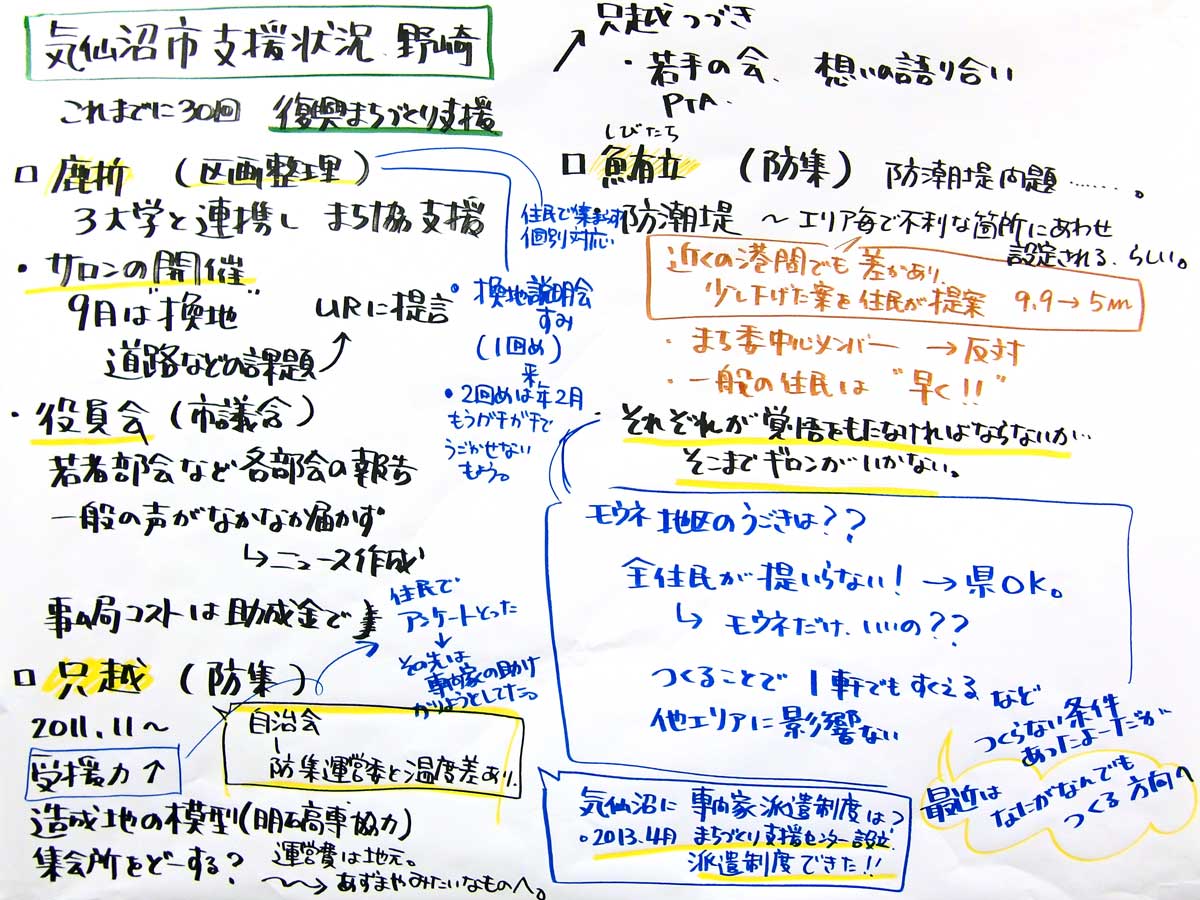 気仙沼市支援状況、野崎
これまでに30回 復興まちづくり支援
□ 鹿折 (区画整理)
3大学と連携し まち協支援
・サロンの開催
9月は"換地"
道路などの課題
URに提言
・役員会(市議会)
若者部会など各部会の報告
一般の声がなかなか届かず
↳ニュース作成
事ム局コストは助成金で
住民で集まらず
個別対応
・換地説明会
すみ
(1回め)
・2回めは来年2月
もうガチガチで
うごかせない
もよう。
□ 只越 (防集)
2011.11〜
受援力↑
住民で
アンケートとった
↓
その先は
専門家の助け
かりようとしてた。
自治会
防集運営委と温度差あり.
造成地の模型(明石高専協力)
集会所をどーする?
運営費は地元。
あずまやみたいなものへ。
只越つづき
・若手の会、想いの語り合い
PTA.
しびたち
□ 鮪立 (防集) 防潮堤問題……。
・防潮堤 〜エリア毎で不利な箇所にあわせ
設定される、らしい。
近くの港間でも差があり、
少し下げた案を住民が提案 9.9→5m
・まち委中心メンバー →反対
・一般の住民は "早く!!"
それぞれが覚悟をもたなければならないが…
そこまでギロンがいかない。
モウネ地区のうごきは??
全住民が堤いらない!→県OK。
↳ モウネだけ、いいの??
つくることで1軒でもすくえる など
他エリアに影響ない
つくらない条件
あったよーだが
最近は
なにがなんでも
つくる方向へ
気仙沼に専門家派遣制度は?
。2013.4月 まちづくり支援センター設立.
派遣制度できた!!